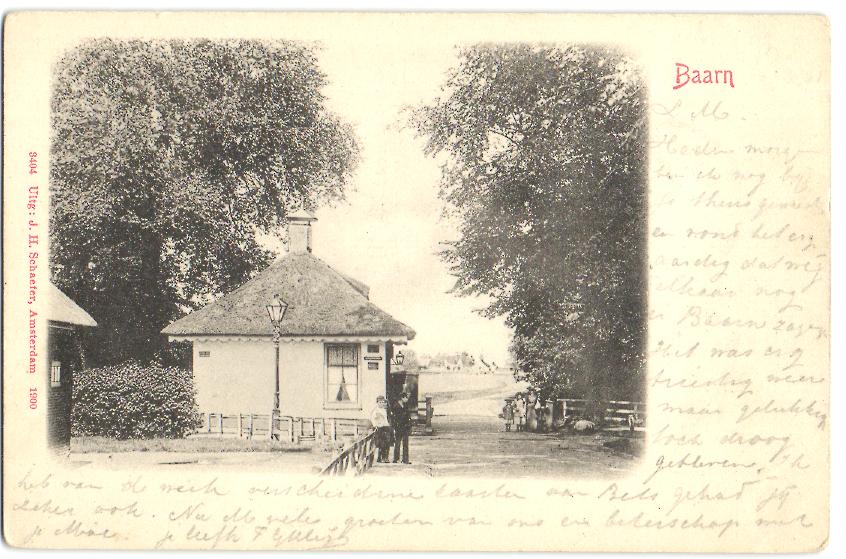 Baarn
3404 Uitg: J. H. Schaefer, Amsterdam 1900
L M.
Heden morgen
ben ik nog bij
je thuis geweest
en vond het erg
aardig dat wij
elkaar nog
Baarn zagen
Het was erg
weer
maar gelukkig
toch droog
gebleven. Ik
heb van de week verscheidene kaarten van Bets gehad jij
zeker ook. Nu M vele groeten van ons en beterschap met
je